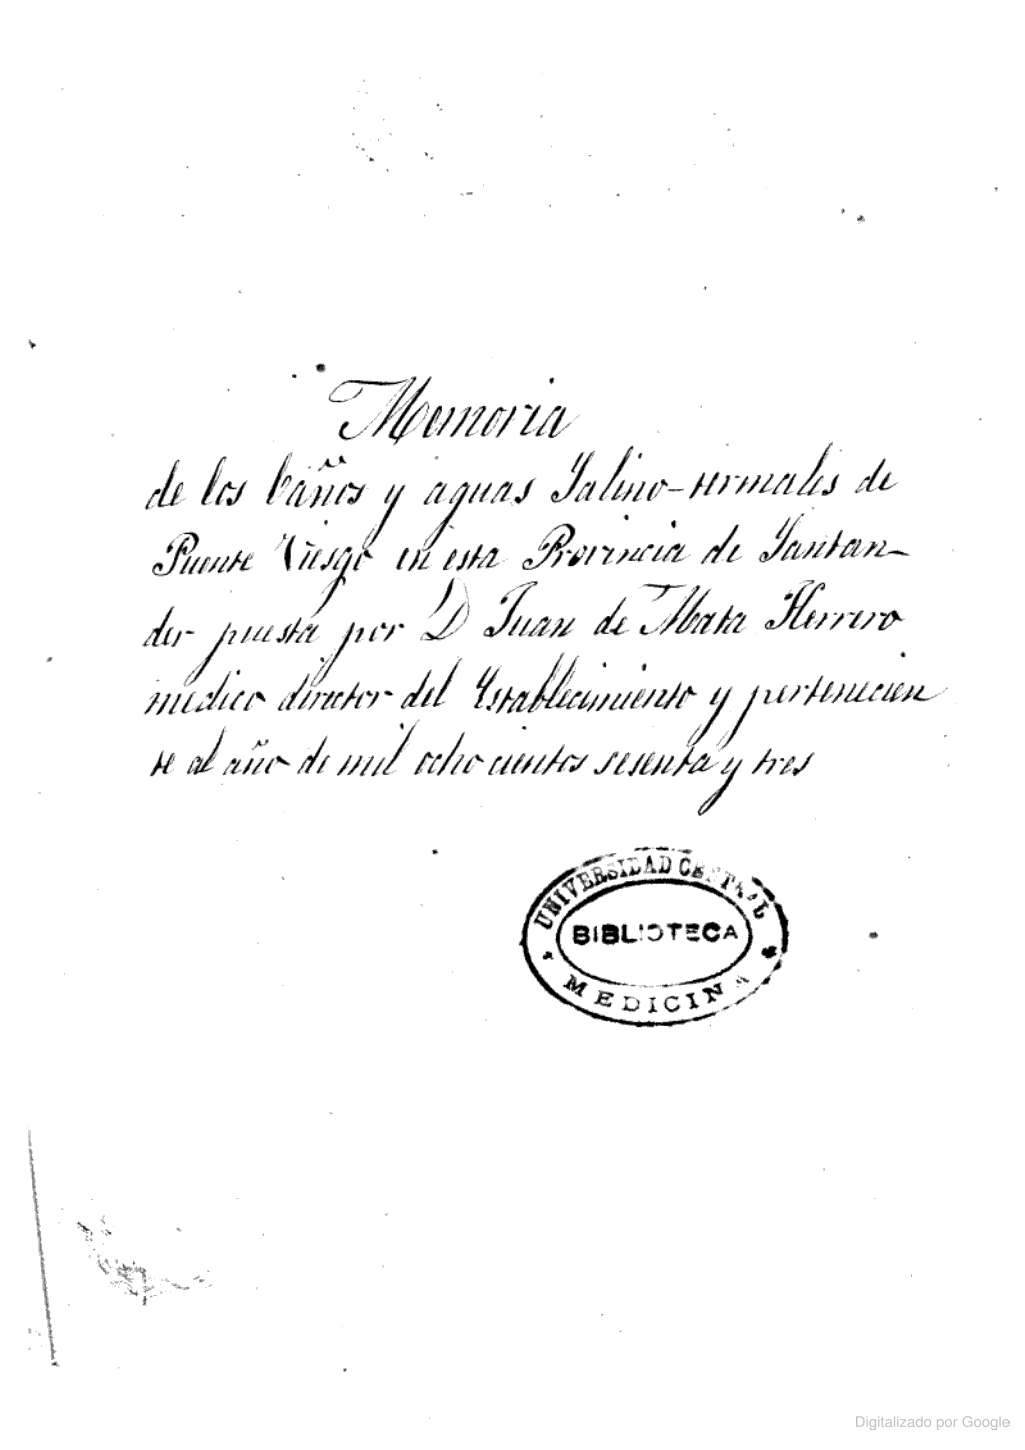 Memoria
de los baños y aguas Salino-termales de
Puente Viesgo en esta Provincia de Santan-
der puesta por D Juan de Mata Herrero
medico director del Establecimiento y pertenecien
te al año de mil ocho cientos sesenta y tres
UNIVERSIDAD CENTRAL
BIBLIOTECA
MEDICINA
Digitalizado por Google